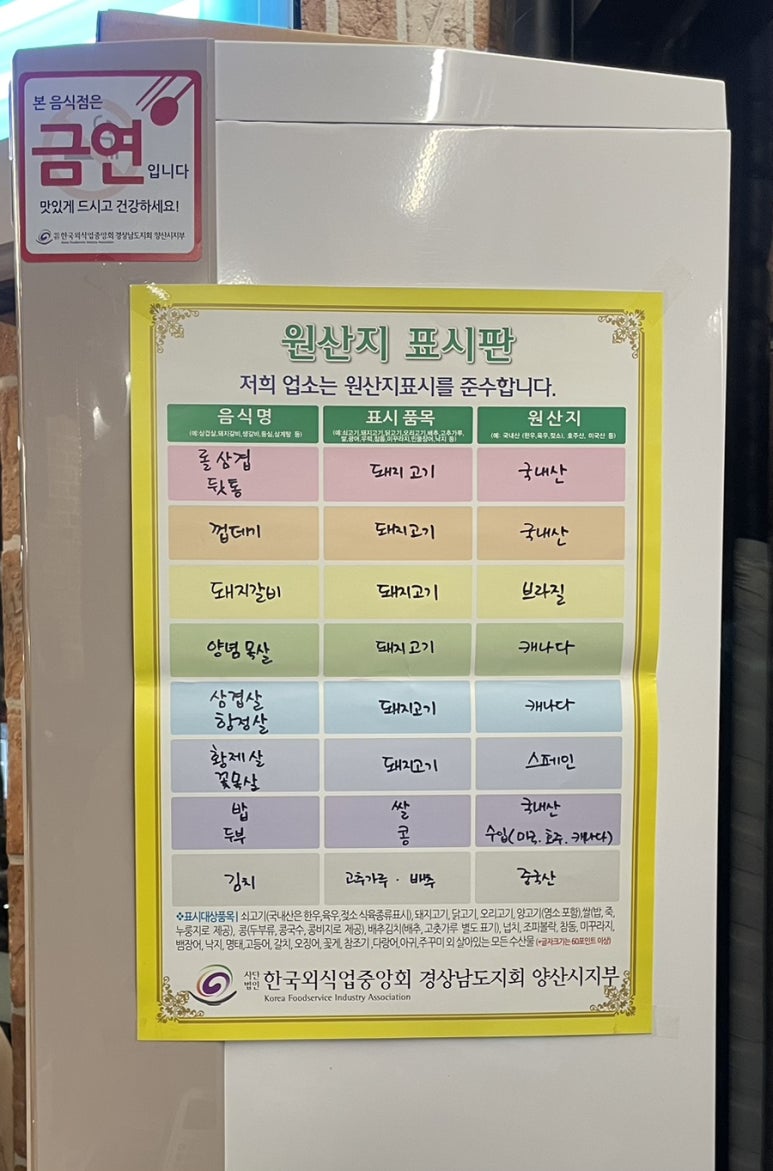 본 음식점은
금연입니다
맛있게 드시고 건강하세요!
한국외식업중앙회 경상남도지회 양산시지부
Korea Foodservice Industry Association
원산지 표시판
저희 업소는 원산지표시를 준수합니다.
음식명 표시 품목 원산지
(예:삼겹살,돼지갈비,생갈비,등심,삼계탕 등) (예:쇠고기,돼지고기,닭고기,오리고기,배추,고추가루, (예: 국내산 (한우,육우,젖소), 호주산, 미국산 등)
쌀,광어,우럭,참돔,미꾸라지,민물장어,낙지 등)
롤삼겹 돼지고기 국내산
뒷통
껍데기 돼지고기 국내산
돼지갈비 돼지고기 브라질
양념목살 돼지고기 캐나다
삼겹살 돼지고기 캐나다
항정살
황제살 돼지고기 스페인
꽃목살
밥 쌀 국내산
두부 콩 수입(미국. 호주. 캐나다)
김치 고추가루 · 배추 중국산
❖표시대상품목 | 쇠고기(국내산은 한우,육우,젖소 식육종류표시), 돼지고기, 닭고기, 오리고기, 양고기(염소 포함),쌀(밥, 죽,
누룽지로 제공), 콩(두부류, 콩국수, 콩비지로 제공), 배추김치(배추, 고춧가루 별도 표기), 넙치, 조피볼락, 참돔, 미꾸라지,
뱀장어, 낙지, 명태,고등어, 갈치, 오징어, 꽃게, 참조기 ,다랑어,아귀,주꾸미 외 살아있는 모든 수산물 (*글자크기는 60포인트 이상)
사단법인 한국외식업중앙회 경상남도지회 양산시지부
Korea Foodservice Industry Association